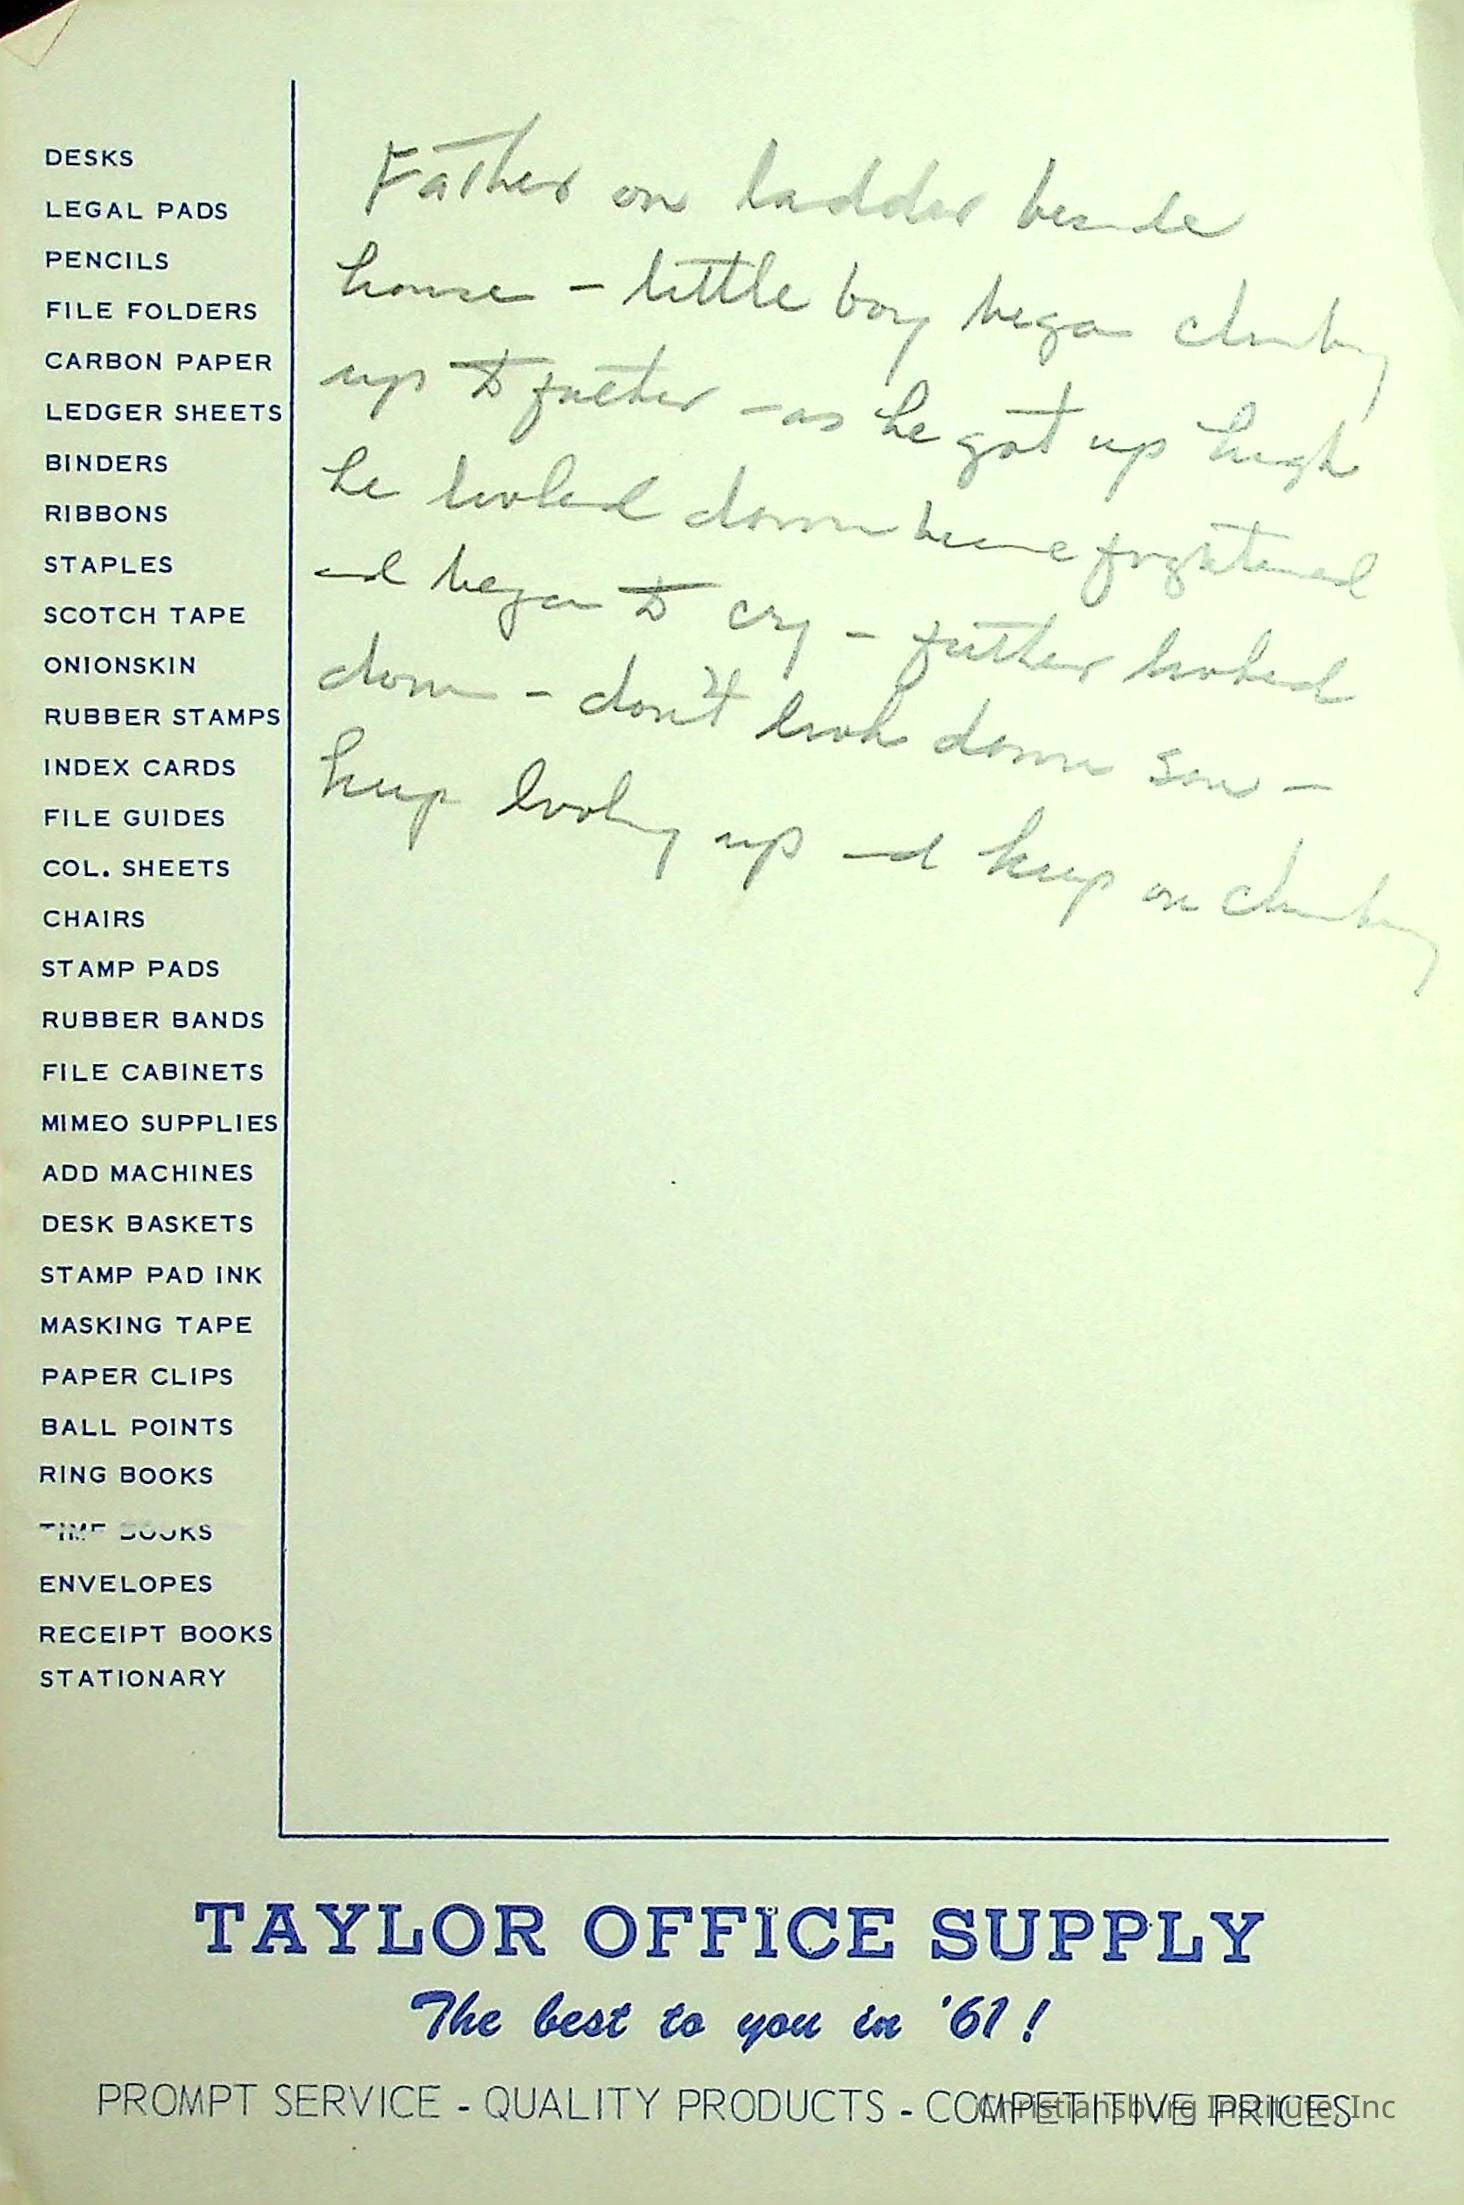 DESKS
LEGAL PADS
PENCILS
FILE FOLDERS
CARBON PAPER
LEDGER SHEETS
BINDERS
RIBBONS
STAPLES
SCOTCH TAPE
ONIONSKIN
RUBBER STAMPS
INDEX CARDS
FILE GUIDES
COL. SHEETS
CHAIRS
STAMP PADS
RUBBER BANDS
FILE CABINETS
MIMEO SUPPLIES
ADD MACHINES
DESK BASKETS
STAMP PAD INK
MASKING TAPE
PAPER CLIPS
BALL POINTS
RING BOOKS
TIME BOOKS
ENVELOPES
RECEIPT BOOKS
STATIONARY
Father on ladder beside
house - little boy began climbing
up to father - as he got up high
he looked down became frightened
and began to cry - father looked
down - don't look down son -
keep looking up and keep on climbing
TAYLOR OFFICE SUPPLY
The best to you in '61!
PROMPT SERVICE - QUALITY PRODUCTS - COMPETITIVE PRICES
Christiansburg Institute, Inc